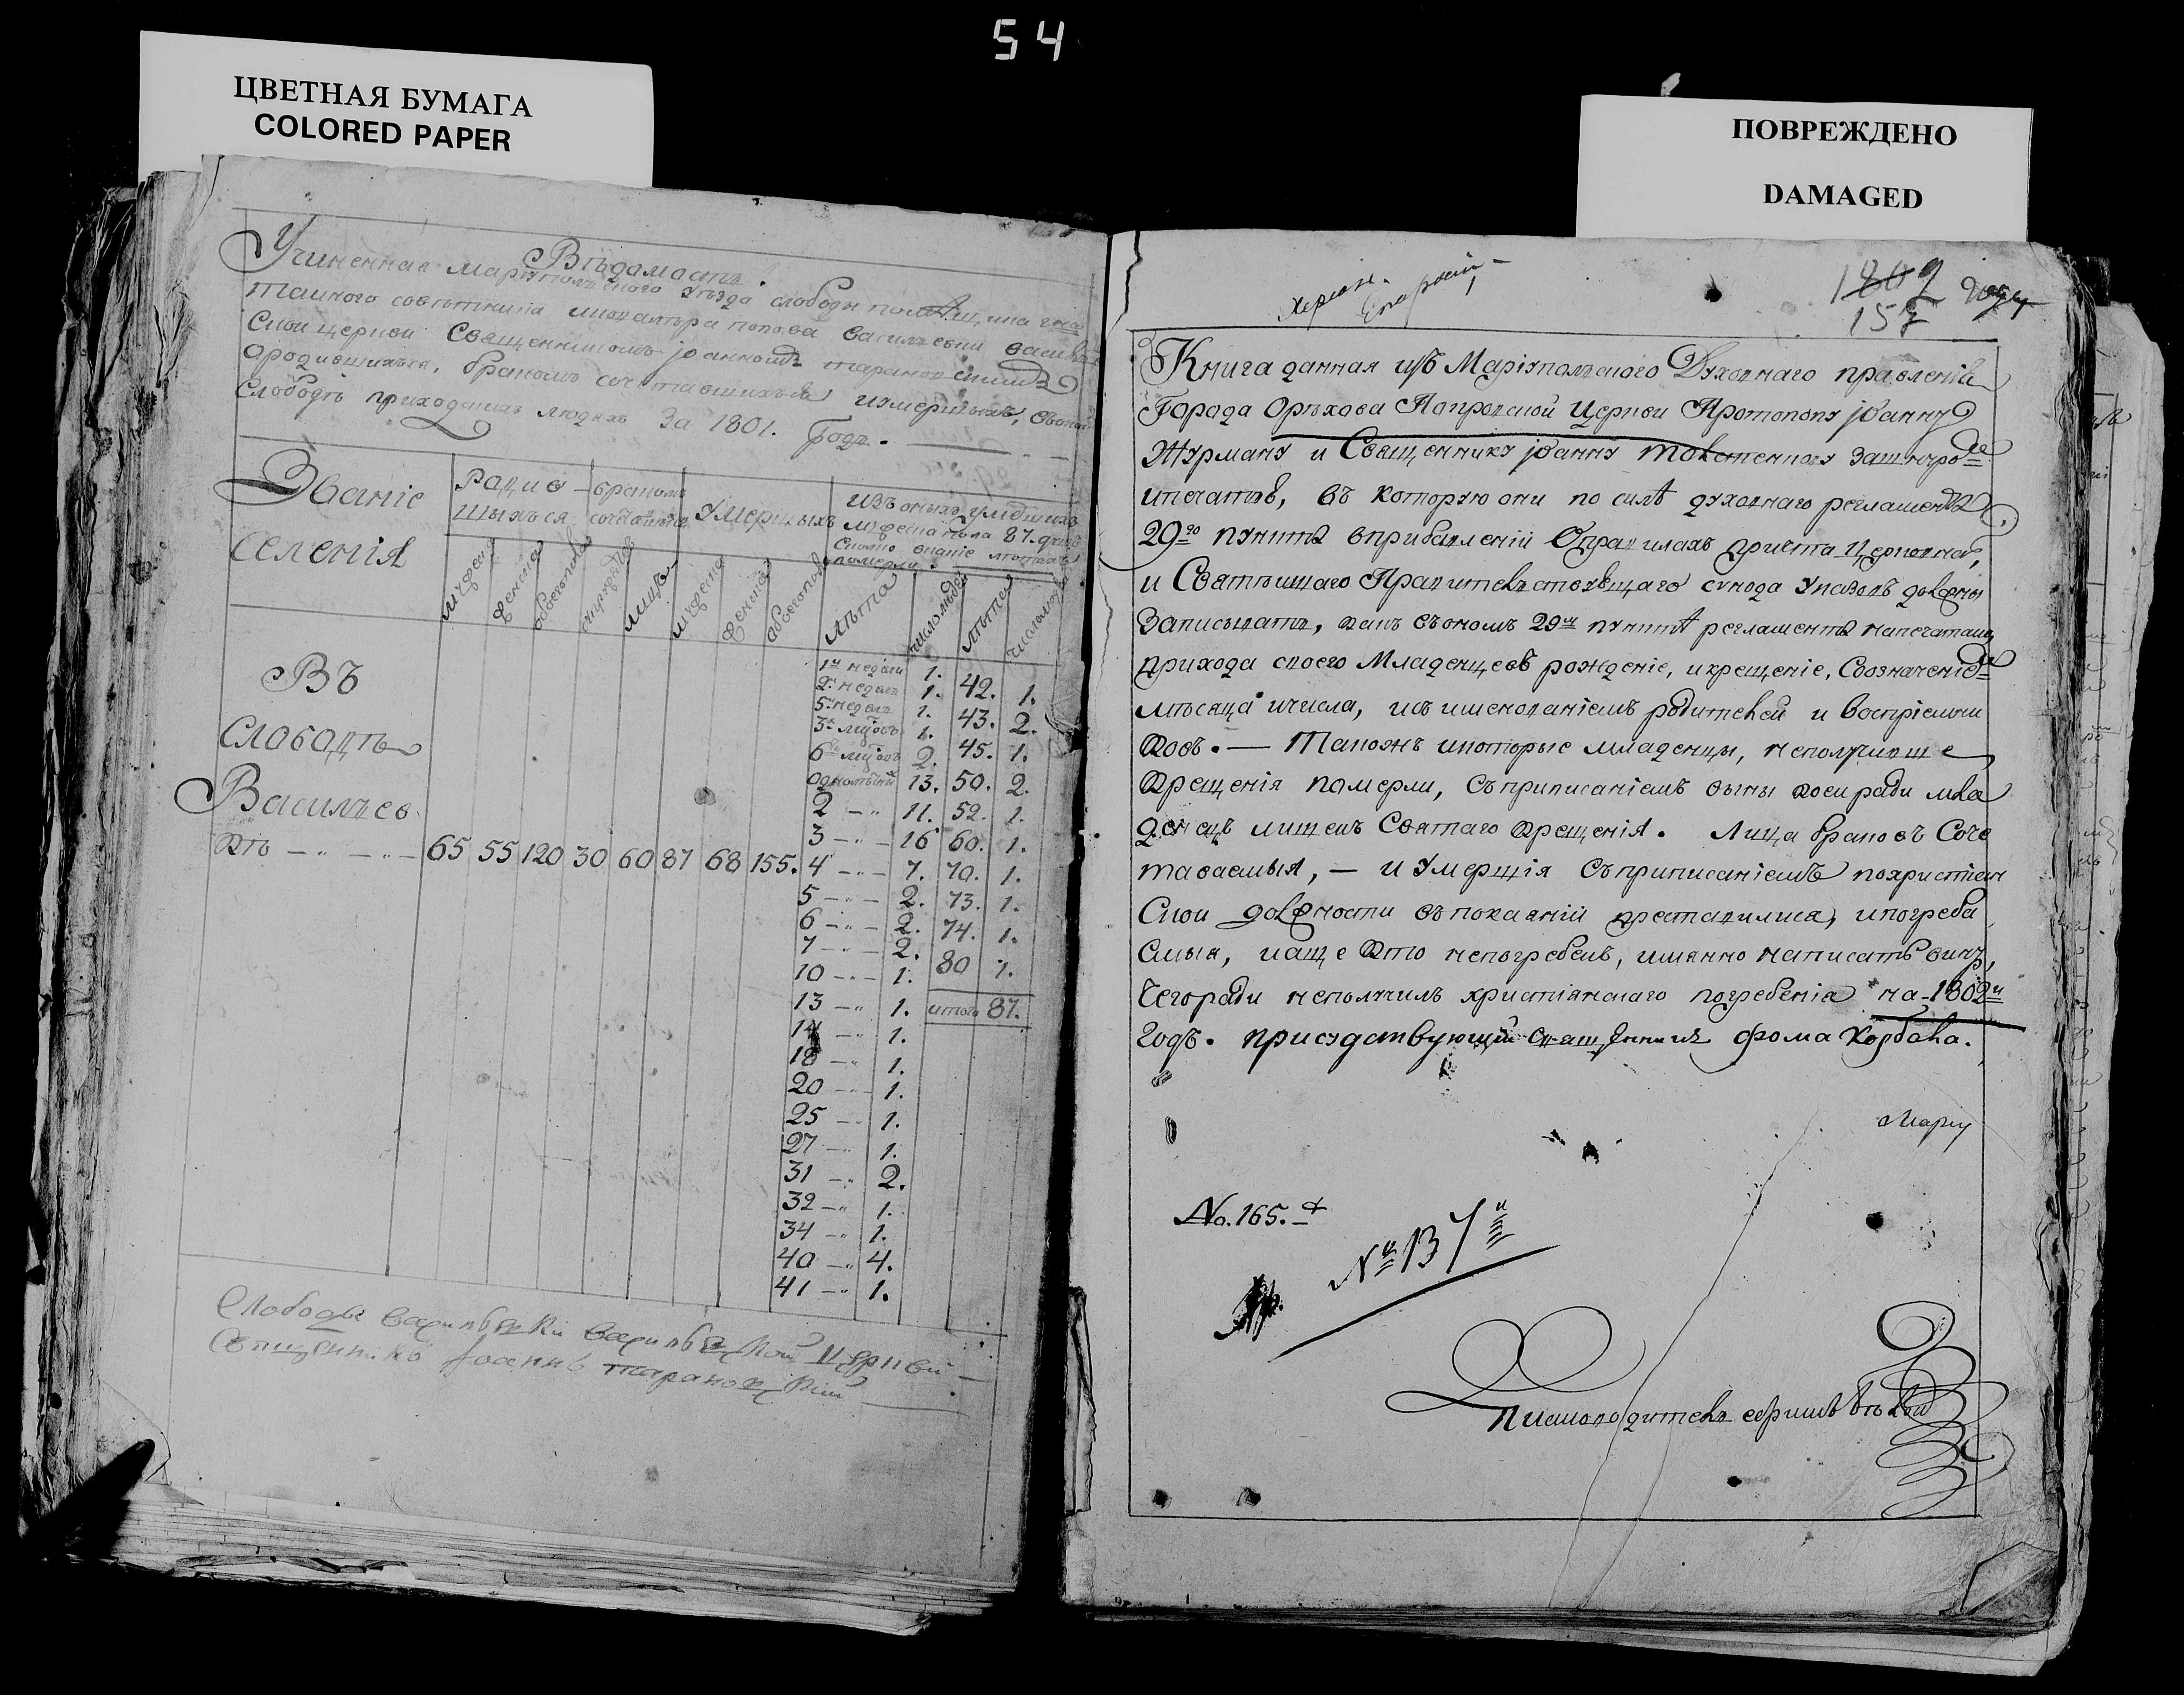 54
ЦВЕТНАЯ БУМАГА
COLORED PAPER
ПОВРЕЖДЕНО
DAMAGED
Вѣдомость
Учиненная Маріупольского уѣзда слободы помѣщика
тайного совѣтника попова василь
ской церкви Священникомъ іоанномъ таран
ородившихъся, бракомъ сочитавшихъся иумершихъ,
Слободѣ приходскихъ людяхъ За 1801. Годъ.
Званіе
селенія
Родив
шыхъся
бракомъ
Умершыхъ
изъ оныхъ умершихъ
мужеска пола 87.
мужеска
женска
обоегопола
мужеска
женска
обоегопола
лѣта
число людей
лѣта
Въ
Слободѣ
Васильев
кѣ 65 55 120 30 60 87 68 155.
1й недѣли 1. 42. 1.
2. недель 1. 43. 2.
5. недель 1. 45. 1.
3х 1. 50. 2.
6ти 2. 52. 1.
13. 60. 1.
2 11. 70. 1.
3 16 73. 1.
4 7. 74. 1.
5 2. 80 1.
6 2. итого 87.
7 2.
10 1.
13 1.
14 1.
18 1.
20 1.
25 1.
27 1.
31 2.
32 1.
34 1.
40 4.
41 1.
Слободы васильевки васильевской Церкви
Священникъ Іоаннъ таран
1802 году
157
Книга данная изъ Маріупольского Духовнаго правленія
Города Орѣхова Покровской Церкви Протопопу іоанну
Журману и Священнику іоанну за шнуро
ипечатью, въ которую они по силѣ духовнаго регламента
29го пункта вприбавленій Оправилахъ причта церковна,
и Святѣйшаго Правительствующаго сунода указовъ должны
Записывать, какъ въономъ 29м пунктѣ регламента напечатано
прихода своего Младенцевъ рожденіе, икрещеніе, Созначеніе
мѣсяца ичисла, исъ именованіемъ родителей и воспріемни
ковъ. — Такожъ икоторые младенцы, неполучивше
крещенія померли, съприписаніемъ вины коей ради мла
денецъ лишенъ Святаго крещенія. Лица бракомъ Соче
таваемыя, — и умершія съприписаніемъ похристіан
ской должности въпокаяній преставилися, ипогреба
емыя, иаще кто непогребенъ, имянно написать вину,
Чегоради неполучилъ христіянскаго погребенія на-1802й
годъ. присудствующій священникъ фома Корбала.
Марту
No. 165.
№ 137й